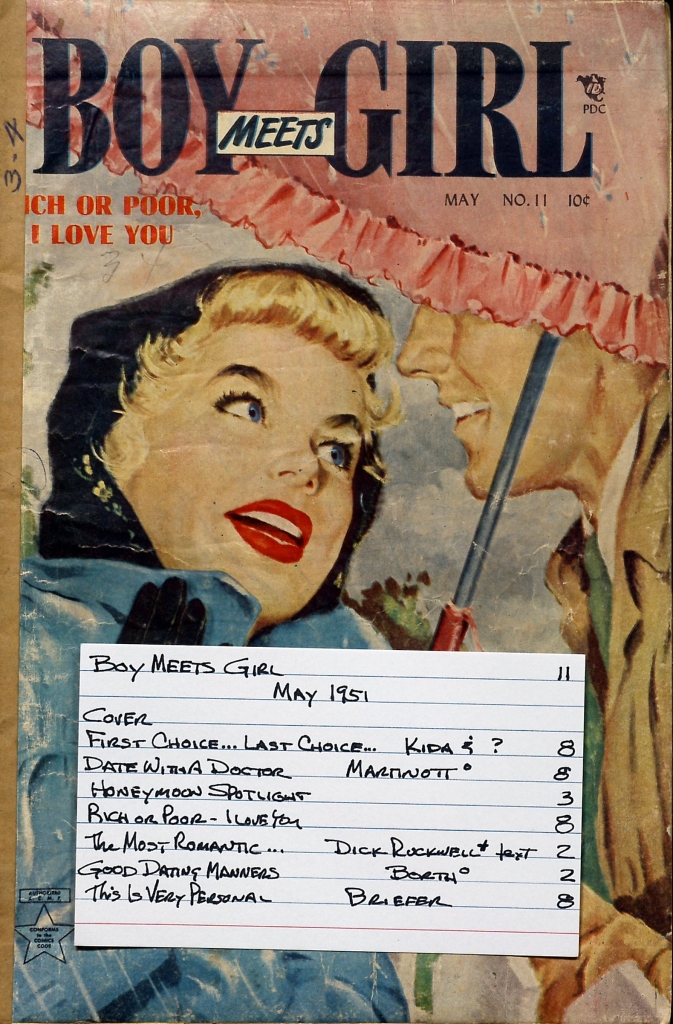 BOY MEETS GIRL
PDC
MAY NO. 11 10¢
3-4
ICH OR POOR,
I LOVE YOU
BOY MEETS GIRL 11
MAY 1951
COVER
FIRST CHOICE... LAST CHOICE... KIDA & ? 8
DATE WITH A DOCTOR MARTINOTT° 8
HONEYMOON SPOTLIGHT 3
RICH OR POOR - I LOVE YOU 8
THE MOST ROMANTIC ... DICK ROCKWELL* text 2
GOOD DATING MANNERS BORTH° 2
THIS IS VERY PERSONAL BRIEFER 8
AUTHORIZED
A.C.M.P.
CONFORMS
to the
COMICS
CODE